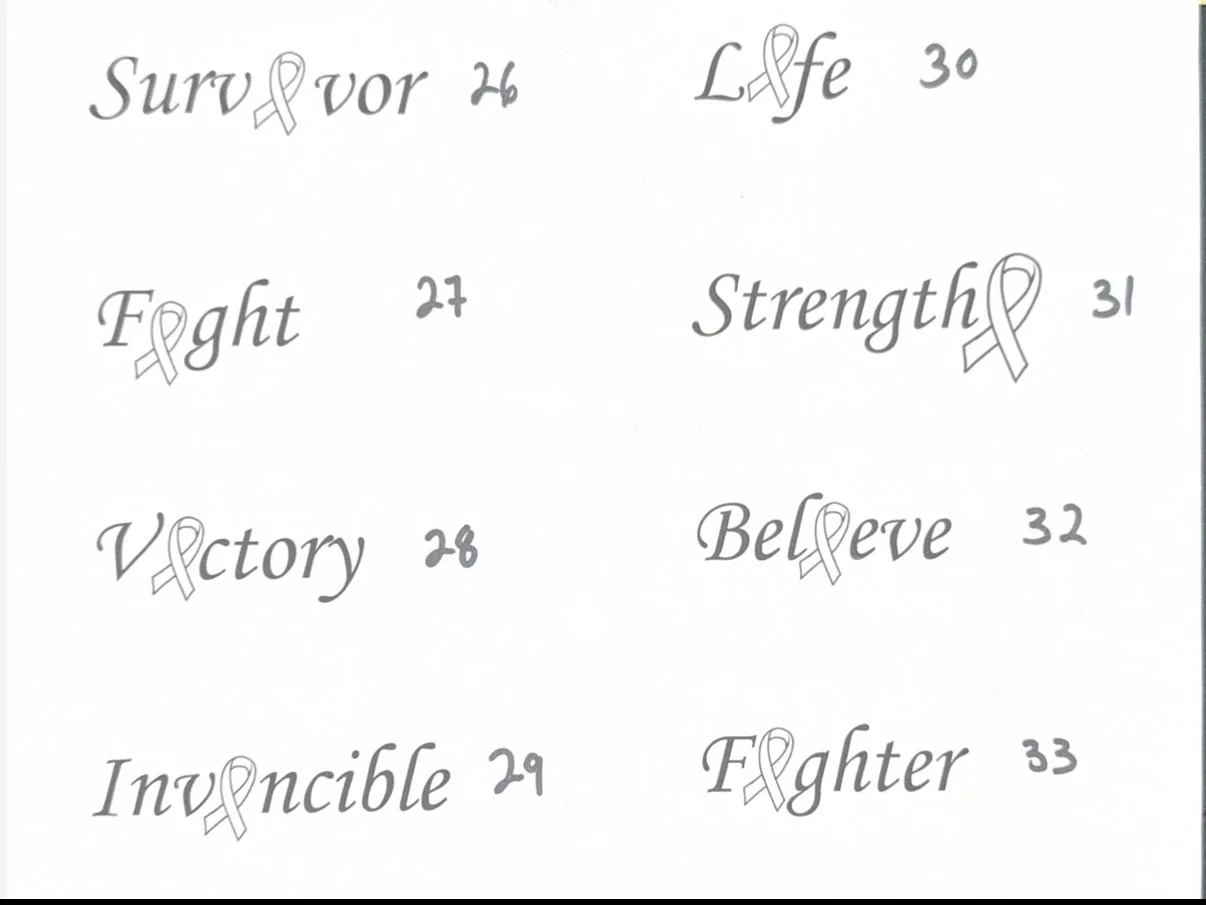 Survivor 26
Life 30
Fight 27
Strength 31
Victory 28
Believe 32
Invincible 29
Fighter 33